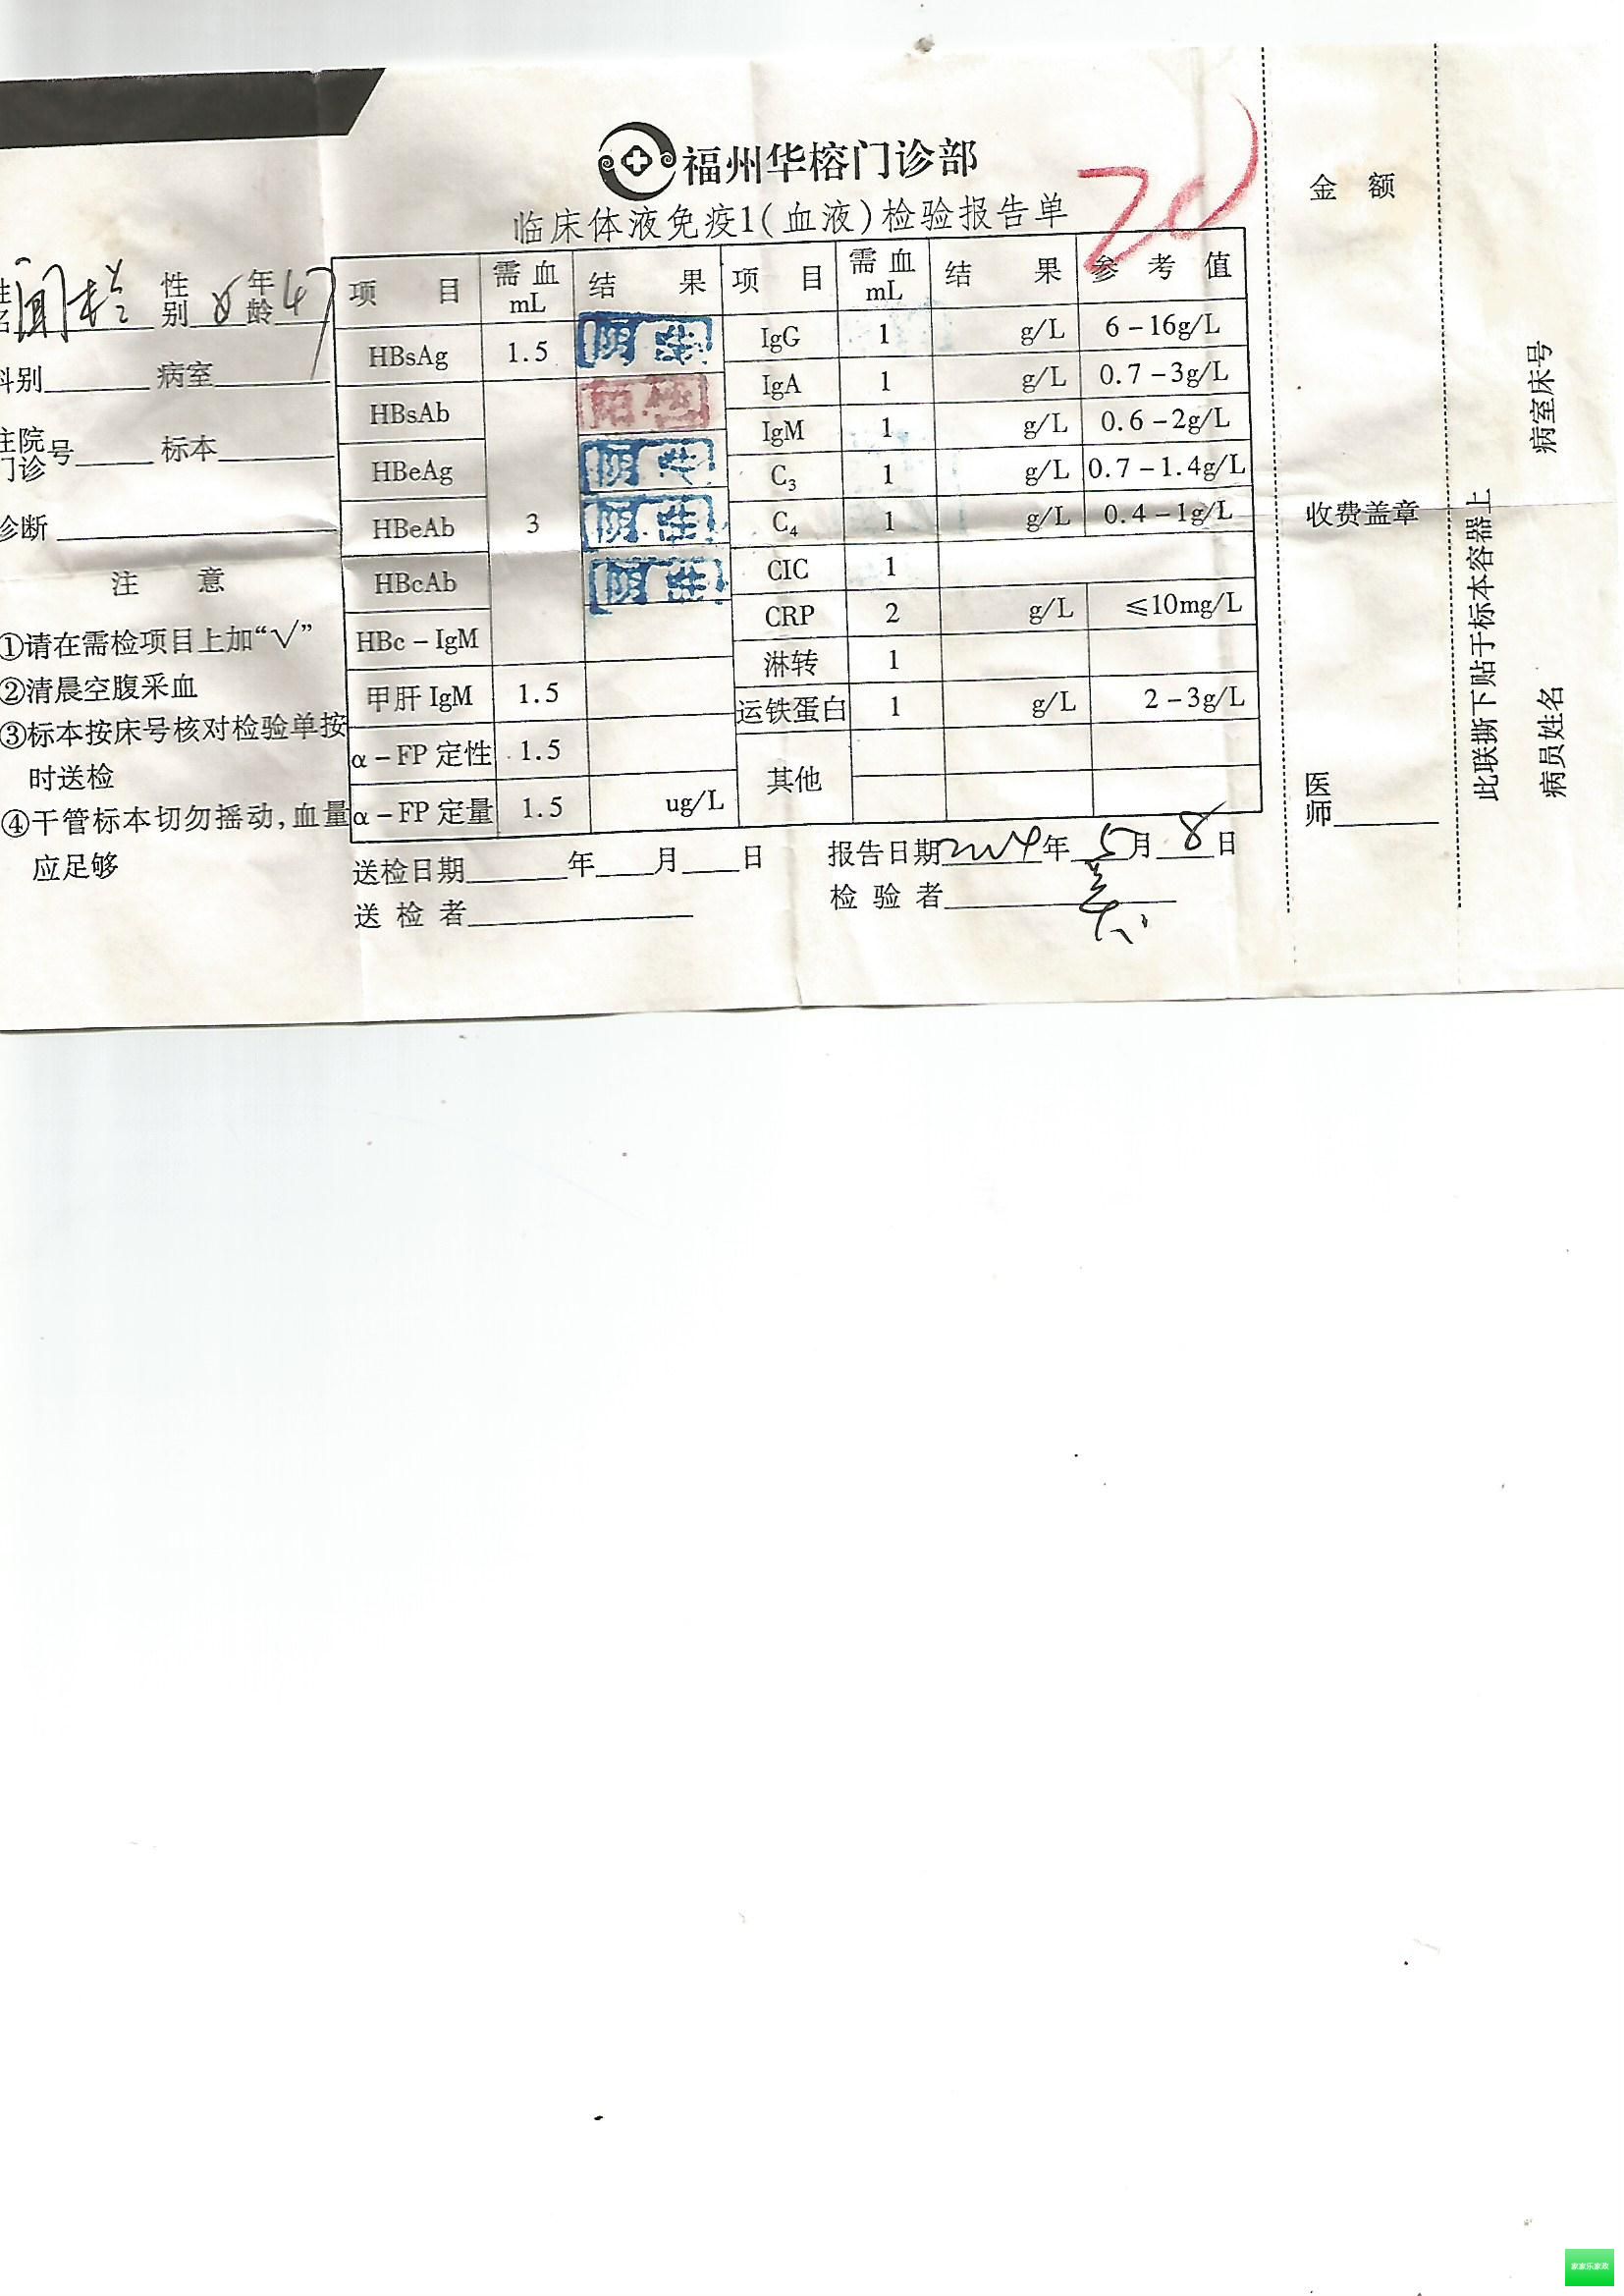 福州华榕门诊部
临床体液免疫1(血液)检验报告单
姓名 性别 女 年龄 47
科别 病室
住院门诊号 标本
诊断
注 意
①请在需检项目上加“√”
②清晨空腹采血
③标本按床号核对检验单按
时送检
④干管标本切勿摇动,血量
应足够
项 目 需血 mL 结 果 项 目 需血 mL 结 果 参 考 值
HBsAg 1.5 阴性 IgG 1 g/L 6-16g/L
HBsAb 阳性 IgA 1 g/L 0.7-3g/L
HBeAg 阴性 IgM 1 g/L 0.6-2g/L
HBeAb 3 阴性 C3 1 g/L 0.7-1.4g/L
HBcAb 阴性 C4 1 g/L 0.4-1g/L
HBc-IgM CIC 1
甲肝 IgM 1.5 CRP 2 g/L ≤10mg/L
α-FP 定性 1.5 淋转 1
α-FP 定量 1.5 ug/L 运铁蛋白 1 g/L 2-3g/L
其他
送检日期 年 月 日 报告日期 2004年 5月 8日
送 检 者 检 验 者
金 额
收费盖章
医师
此联撕下贴于标本容器上
病室床号
病员姓名
家家乐家政